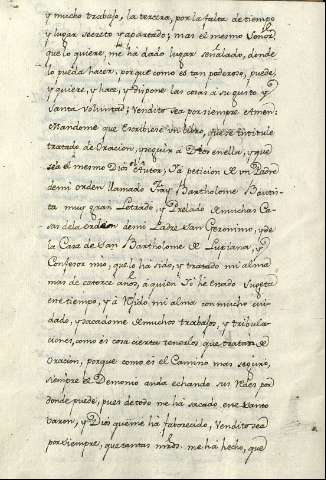 y mucho trabajo, la tercera, por la falta de tiempo
y lugar secreto y apartado, mas el mesmo Señor
que lo quiere, me ha dado lugar señalado, donde
lo pueda hacer, porque como es tan poderoso, puede
y quiere, y hace, y dispone las cosas á su gusto y
Santa voluntad; Vendito sea por siempre Amen:
Mandome que escribiese un libro, que se intitule
tratado de Oracion, y seguir a Dios en ella, y que
sea el mesmo Dios el Autor, Ya peticion de vn Padre
de mi orden llamado Fray Bartholome Bautis-
ta muy gran Letrado, y Prelado de muchas Ca-
sas de la orden de mi Padre San Geronimo, y de
la Casa de San Bartholome de Lupiana, y
Confesor mio, que lo há sido, y tratado mi alma
mas de catorce años, a quien Yó hé estado Sugeta
este tiempo, y á regido mi alma con mucho cui-
dado, y sacadome de muchos trabajos, y tribula-
ciones, como es cosa cierta tenerlos que tratan de
Oracion, porque como es el Camino mas seguro,
siempre el Demonio anda echando sus redes por
donde puede, pues de todo me há sacado este Santo
varon, y Dios que me há faborecido, Vendito sea
por siempre, que tantas mrds. me há hecho, que